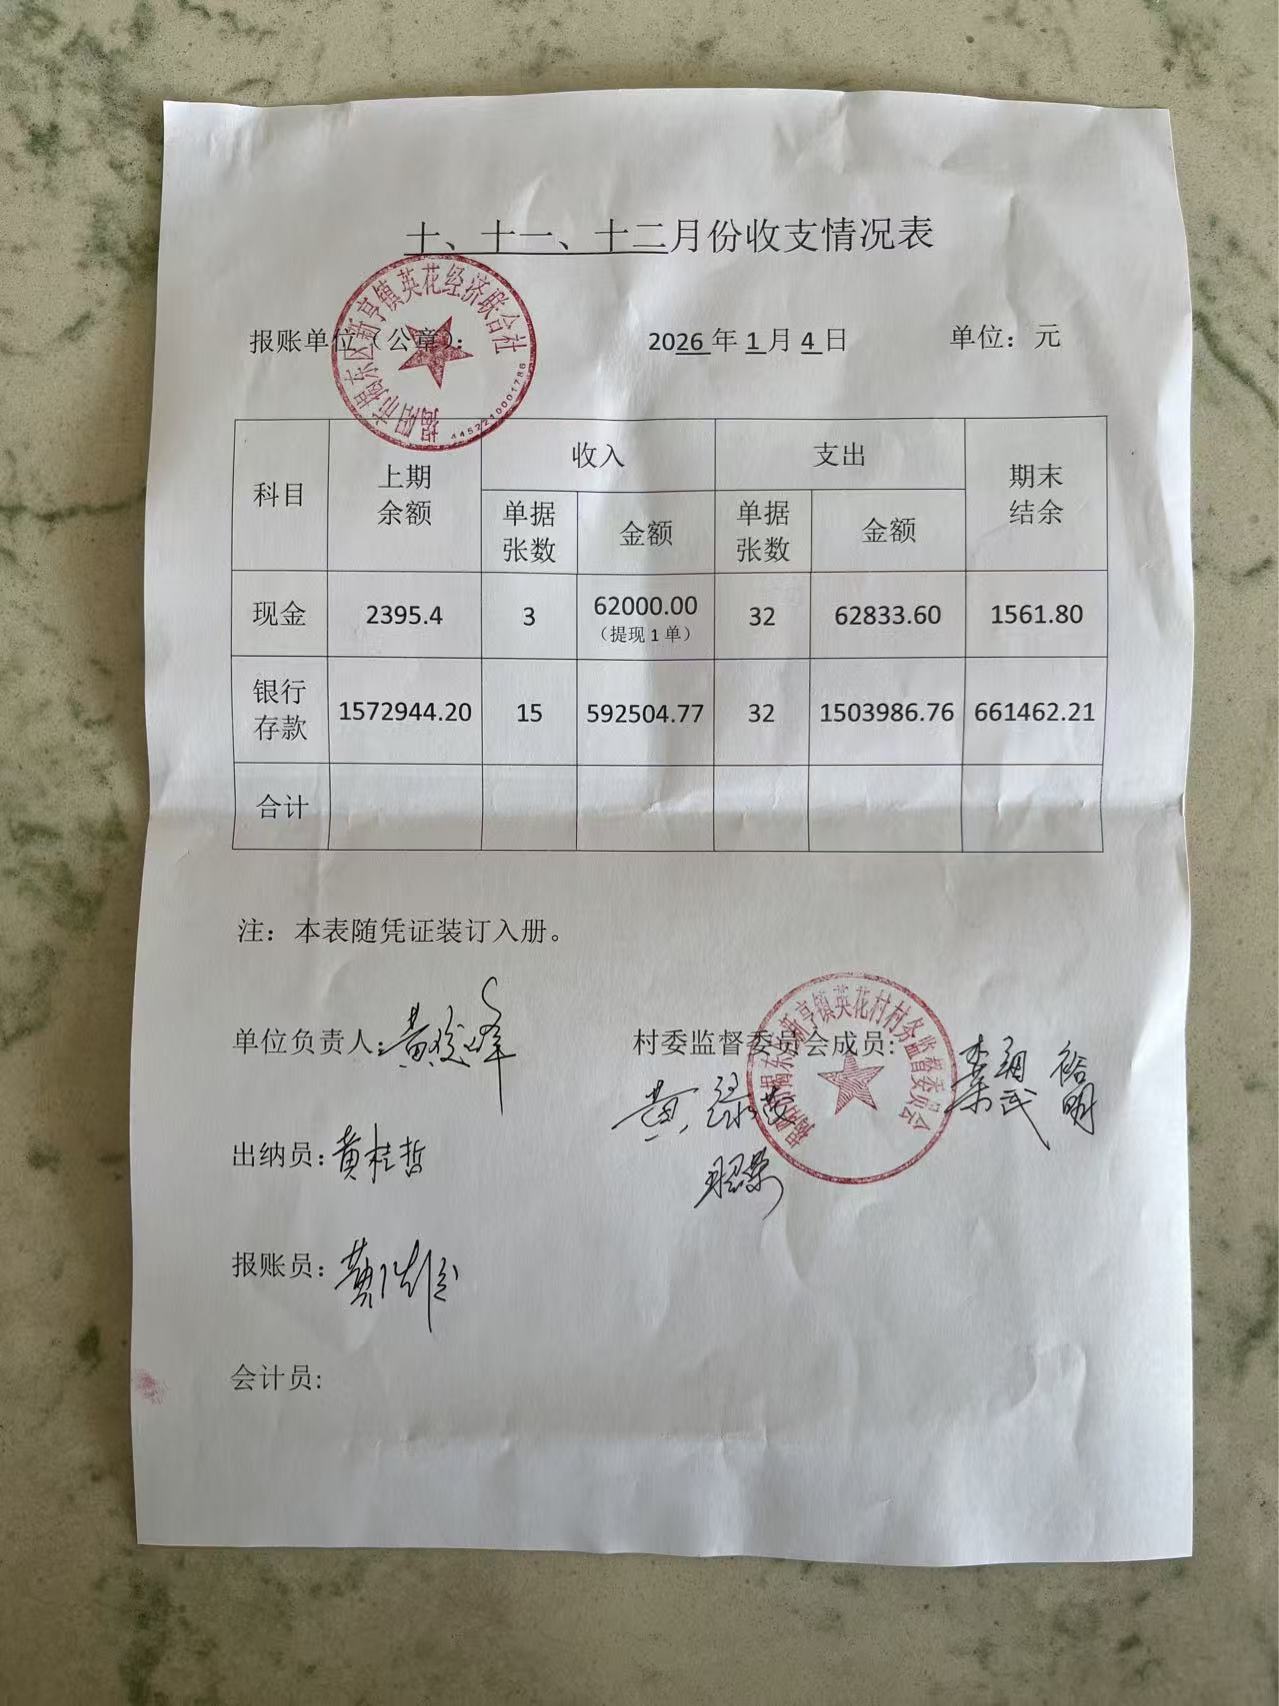 十、十一、十二月份收支情况表
揭阳市揭东区新亨镇英花经济联合社
4452210001786
报账单位（公章）： 2026 年 1 月 4 日 单位：元
科目 上期余额 收入 支出 期末结余
单据张数 金额 单据张数 金额
现金 2395.4 3 62000.00（提现1单） 32 62833.60 1561.80
银行存款 1572944.20 15 592504.77 32 1503986.76 661462.21
合计
注：本表随凭证装订入册。
单位负责人： 村委监督委员会成员：
揭阳市揭东区新亨镇英花村村务监督委员会
出纳员：黄桂哲
报账员：
会计员：